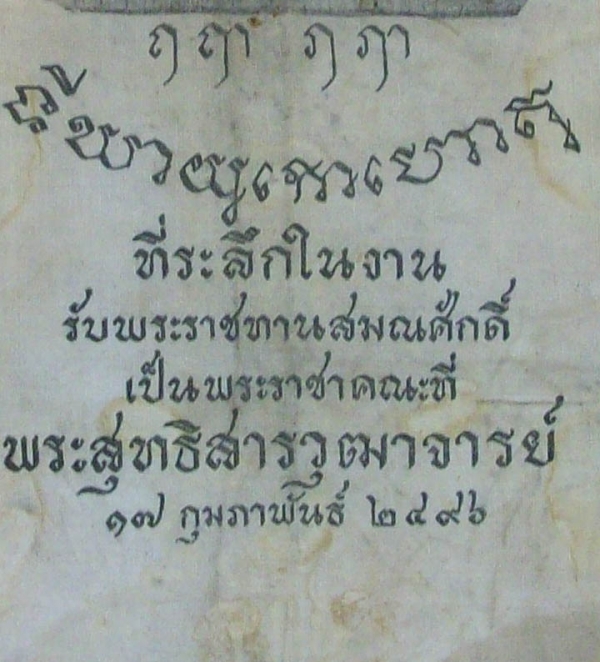 ฤ ฤๅ ฦ ฦๅ
ที่ระลึกในงาน
รับพระราชทานสมณศักดิ์
เป็นพระราชาคณะที่
พระสุทธิสารวุฒาจารย์
๑๗ กุมภาพันธ์ ๒๔๙๖